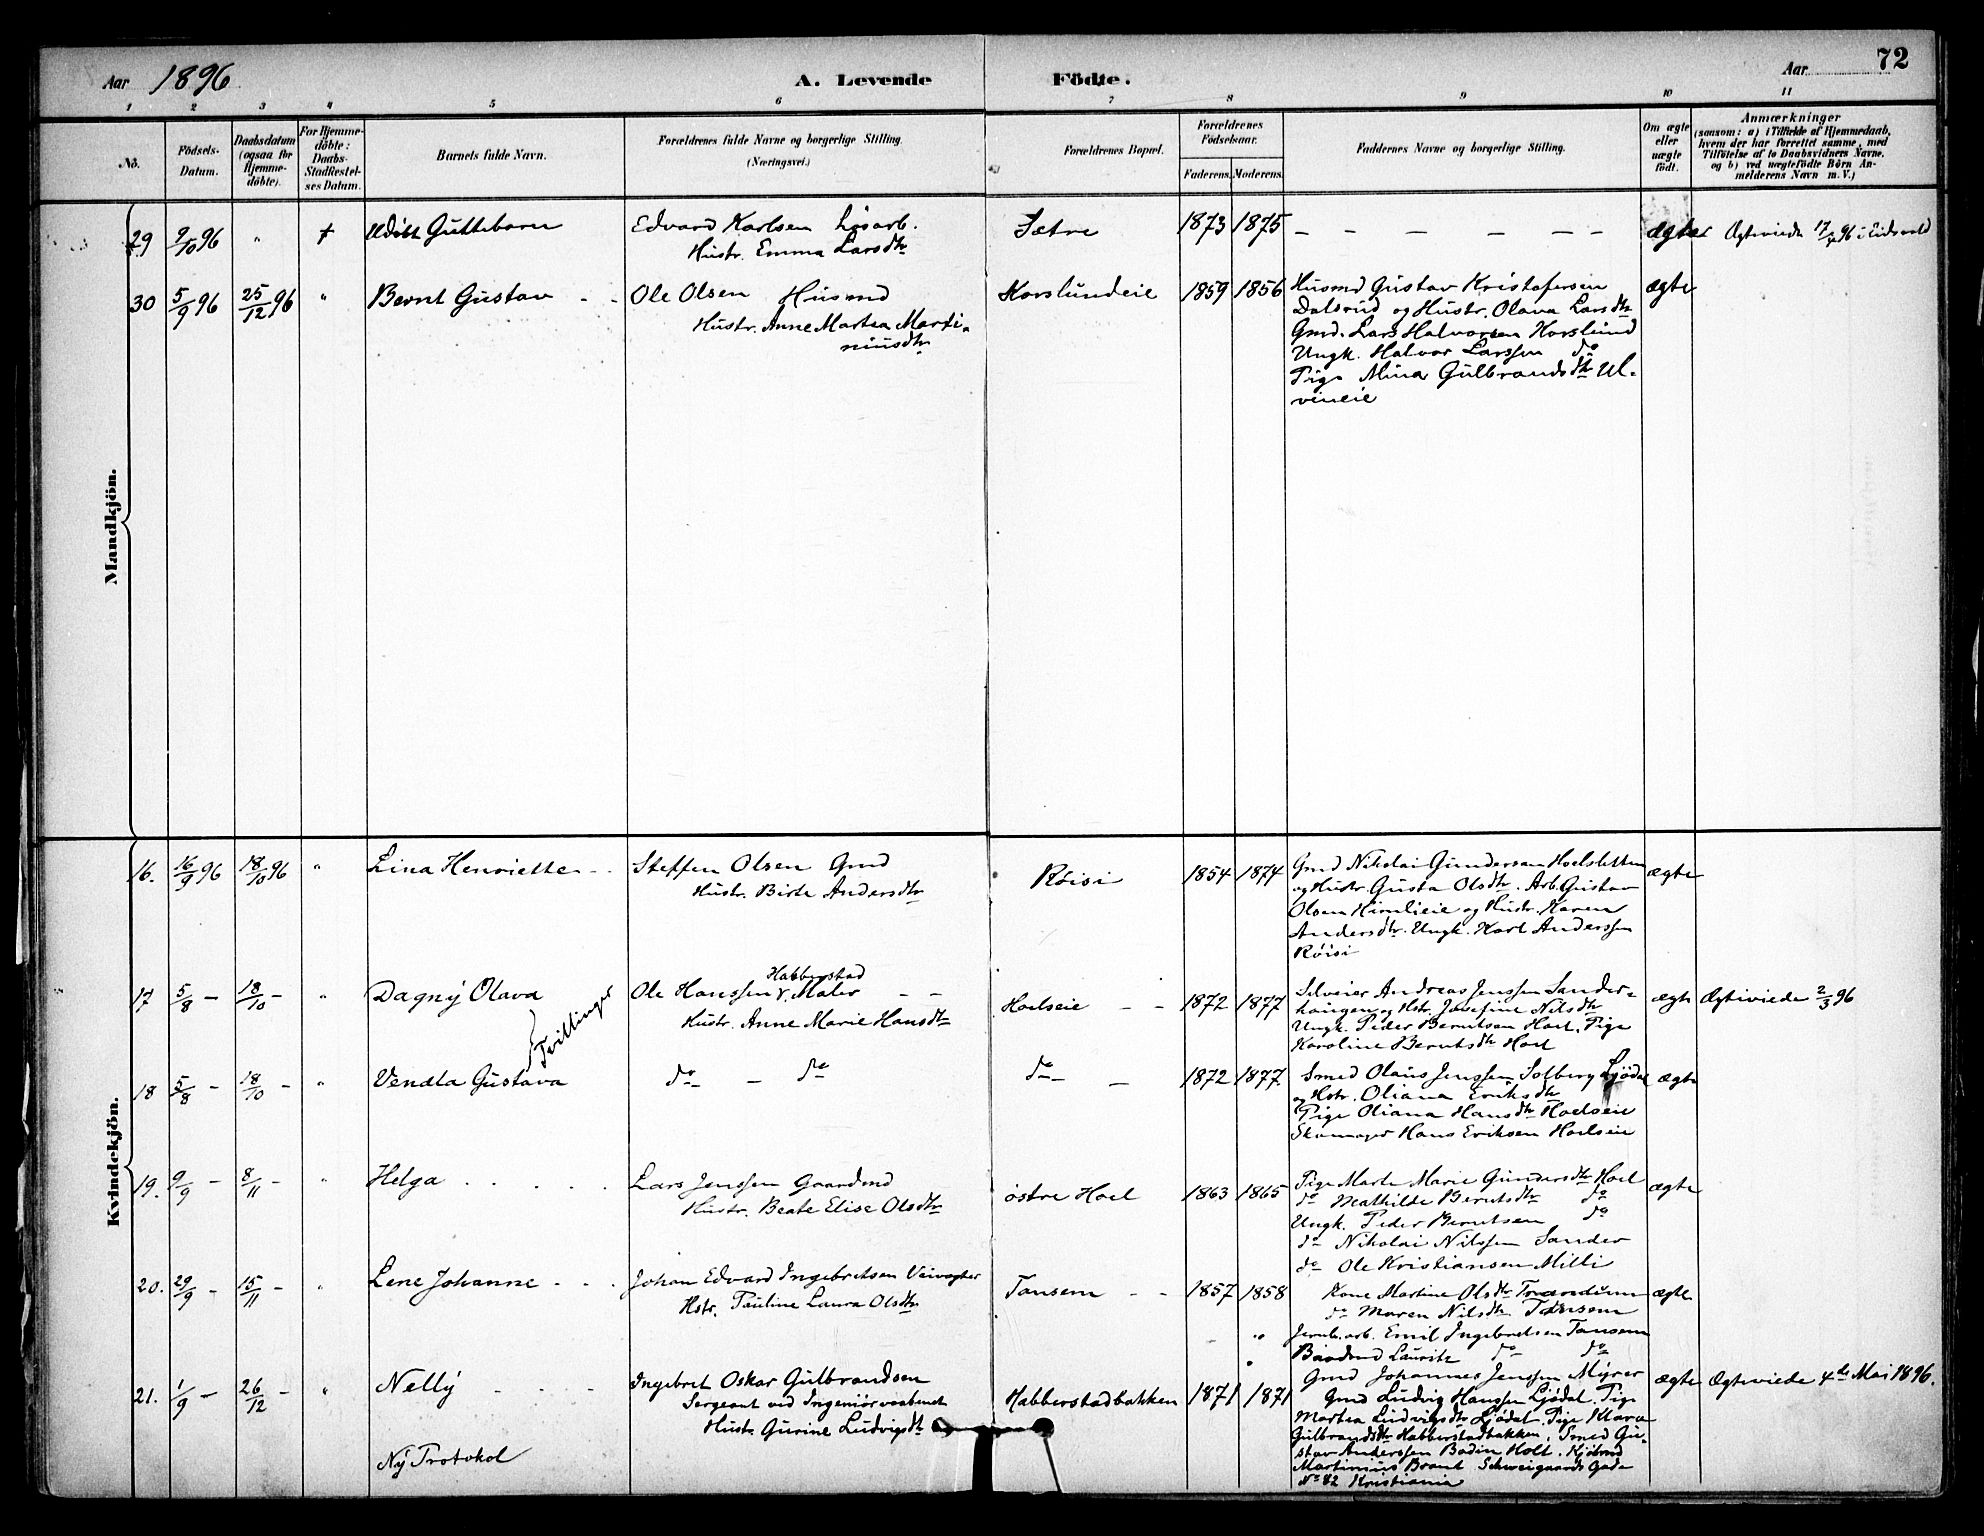 72
Aar 1896
A. Levende Födte.
Aar
1 2 3 4 5 6 7 8 9 10 11
No.
Födsels-Datum.
Daabsdatum (ogsaa for Hjemme-döbte).
For Hjemme-döbte: Daabs-Stadfæstel-ses Datum.
Barnets fulde Navn.
Forældrenes fulde Navne og borgerlige Stilling.
(Næringsvei.)
Forældrenes Bopæl.
Forældrenes Födselsaar.
Faderens. Moderens.
Faddernes Navne og borgerlige Stilling.
Om ægte eller uægte födt.
Anmærkninger
(saasom: a) i Tilfælde af Hjemmedaab,
hvem der har forrettet samme, med
Tilföielse af to Daabsvidners Navne.
og b) ved uægtefödte Börn An-
melderens Navn m. V.)
Mandkjön.
29 9/10 96 " † Udöbt Guttebarn Edvard Karlsen Sætre 1873 1875 – – – – – – ægte Ægteviede 17/ 96 i Eidsvold
Hustr. Emma Larsdtr
30 5/9 96 25/12 96 " Bernt Gustav - - Ole Olsen Husmd Horslundeie 1859 1856 Husmd Gustav Kristofersen ægte
Hustr. Anne Martea Marti-
niusdtr
Dalsrud og Hustr. Olava Larsdtr
Gmd. Lars Halvorsen Horslund
Ungk. Halvor Larssen do
Pige Mina Gulbrandsdtr Ul-
vineie
Kvindekjön.
16. 16/9 96 18/10 96 " Lina Henriette - - Steffen Olsen Gmd Röisi 1854 1874 Gmd Nikolai Gundersen Hoelsletten ægte
Hustr. Birte Andersdtr
og Hustr. Gusta Olsdtr. Arb. Gustav
Olsen Himlieie og Hustr. Karen
Andersdtr. Ungk. Karl Anderssen
Röisi
17 5/8 – 18/10 – " Dagny Olava Ole Hanssen Habberstad v. Maler – – Hoelseie – – 1872 1877 Selveier Andreas Jenssen Sander- ægte Ægteviede 2/3 96
Hustr. Anne Marie Hansdtr
haugen og Hstr. Josefine Nilsdtr
Ungk. Peder Berntsen Hoel. Pige
Karoline Berntsdtr Hoel
Tvillinger
18 5/8 – 18/10 – " Vendla Gustava do – do do – 1872 1877 Smed Olaus Jenssen Solberg Ljödal ægte
og Hstr. Oliana Eriksdtr
Pige Oliana Hansdtr Hoelseie
Skomager Hans Eriksen Hoelseie
19. 9/9 – 8/11 – " Helga . . . . . Lars Jenssen Gaardmd östre Hoel 1863 1865 Pige Marte Marie Gundersdtr Hoel ægte
Hustr. Beate Elise Olsdtr
do Mathilde Berntsdtr do
Ungk. Peder Berntsen do
do Nikolai Nilssen Sander
do Ole Kristiansen Milli
20. 29/9 – 15/11 – " Lene Johanne - - - Johan Edvard Ingebretsen Veivogter Tansem – – 1857 1858 Kone Martine Olsdtr Trandum ægte
Hstr. Pauline Laura Olsdtr
do Maren Nilsdtr Tansem
Jernb. arb. Emil Ingebretsen Tansem
Lauritz do do
21. 1/9 – 26/12 – " Nelly - - - Ingebret Oskar Gulbrandsen Habberstadbakken 1871 1871 Gmd Johannes Jenssen Myrer ægte Ægteviede 4de Mai 1896.
Sergeant ved Ingeniörvaabenet
Hustr. Gurine Ludvigsdtr
Gmd Ludvig Hanssen Ljödal. Pige
Martea Ludvigsdtr Ljödal. Pige Klara
Gulbrandsdtr Habberstadbakken. Smed Gu-
stav Anderssen Bodin Holt. Kjöbmd
Martinius Brant Schweigaards Gade
No 82 Kristiania
Ny Protokol